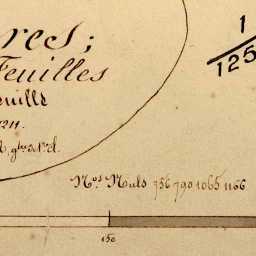 res;
Feuilles
euille
1
125
Nos Nuls 756 790 1065 1166
150